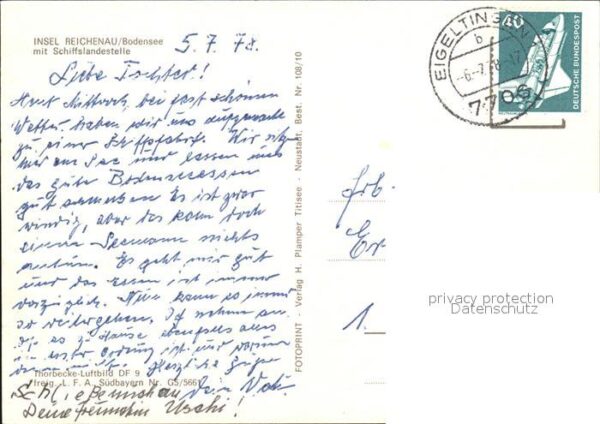 INSEL REICHENAU/Bodensee
mit Schiffslandestelle
5.7.78.
Liebe Tochter!
Heut Mittwoch, bei fast schönem
Wetter, haben wir uns aufgemacht
zu einer Schiffsfahrt. Wir sitzen
hier am See und lassen uns
das gute Bodensee essen
gut schmecken. Es ist zwar
windig, aber das kann doch
einem Seemann nichts
antun. Es geht mir gut
und das Essen ist immer
vorzüglich. Nun kann es immer
so weitergehen. Ich nehme an
daß es zu Hause ebenfalls alles
in bester Ordnung ist und
Herzliche Grüße
Dein Vati
Thorbecke-Luftbild DF 9
freig. L. F. A. Südbayern Nr. G5/5661
Deine Freundin Uschi!
FOTOPRINT - Verlag H. Plamper Titisee - Neustadt, Best. Nr. 108/10
EIGELTINGEN
b
-6.-7.78-17
7706
40
DEUTSCHE BUNDESPOST
Frb.
Er
1.
privacy protection
Datenschutz